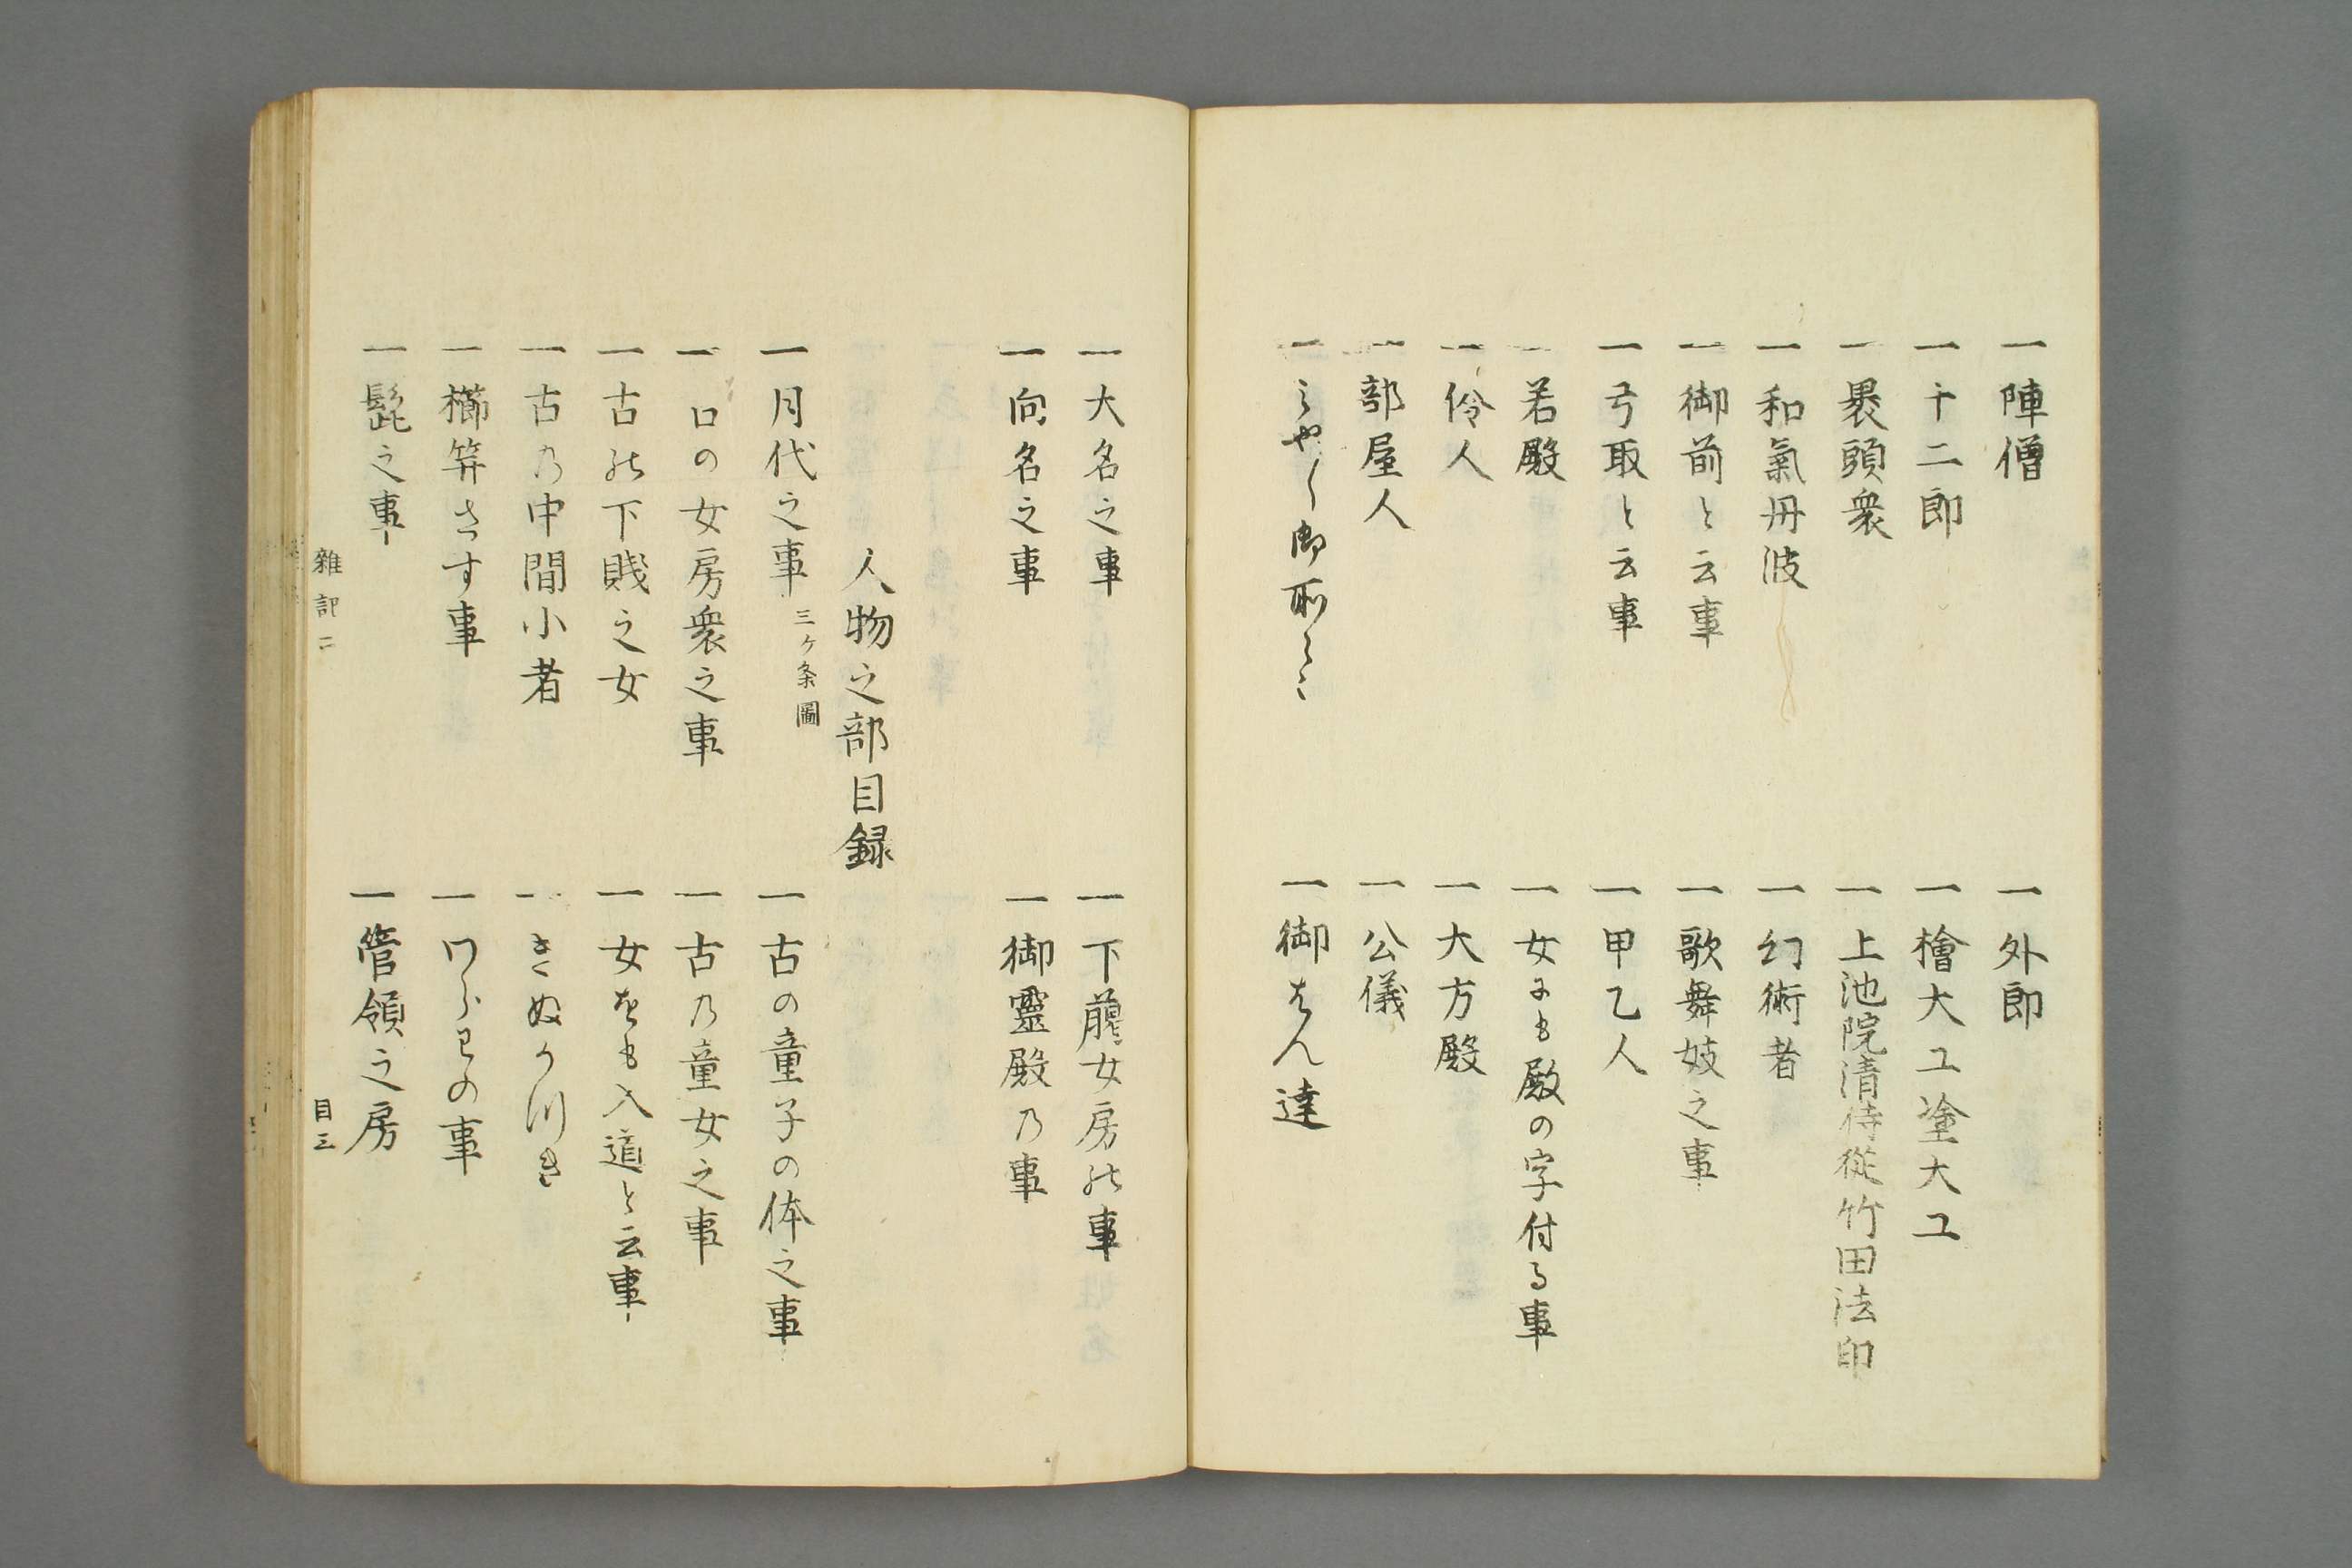 一陣僧　一外郎
一十二郎　一檜大工塗大工
一裹頭衆　一上池院清侍從竹田法印
一和氣丹波　一幻術者
一御前と云事　一歌舞妓之事
一弓取と云事　一甲乙人
一若殿　一女にも殿の字付る事
一伶人　一大方殿
一部屋人　一公儀
一みや〳〵御所　一御きん達
一大名之事　一下臈女房の事
一向名之事　一御靈殿乃事
人物之部目録
一月代之事三ヶ条圖　一古の童子の体之事
一口の女房衆之事　一古乃童女之事
一古の下賤之女　一女をも入道と云事
一古乃中間小者　一きぬかつき
一櫛笄さす事　一わらわの事
一髭之事　一管領之房
雜記二　目三